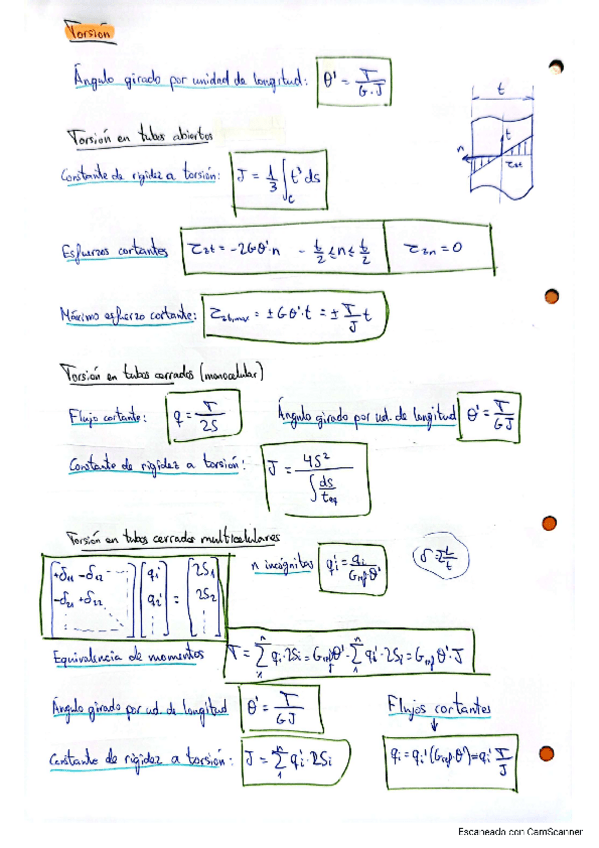 Torsión
Ángulo girado por unidad de longitud: θ' = T / G·J
t
Torsión en tubos abiertos
n t τzt
Constante de rigidez a torsión: J = 1/3 ∫c t³ ds
Esfuerzos cortantes τzt = -2Gθ'·n - t/2 ≤ n ≤ t/2 τzn = 0
Máximo esfuerzo cortante: τzt,max = ± Gθ'·t = ± T/J t
Torsión en tubos cerrados (monocelular)
Flujo cortante: q = T/2S Ángulo girado por ud. de longitud θ' = T/GJ
Constante de rigidez a torsión: J = 4S² / ∫ ds/teq
Torsión en tubos cerrados multicelulares
[+δ11 -δ12 ... -δ21 +δ22 ...] [q1' q2' ⋮] = [2S1 2S2 ⋮] n incógnitas qi' = qi / Gref θ'
Equivalencia de momentos T = Σ₁ⁿ qi·2Si = Gref θ'·Σ₁ⁿ qi'·2Si = Gref θ'·J
Ángulo girado por ud. de longitud θ' = T/GJ Flujos cortantes
↓
Constante de rigidez a torsión: J = Σ₁ⁿ qi'·2Si qi = qi'(Gref·θ') = qi' T/J
Escaneado con CamScanner